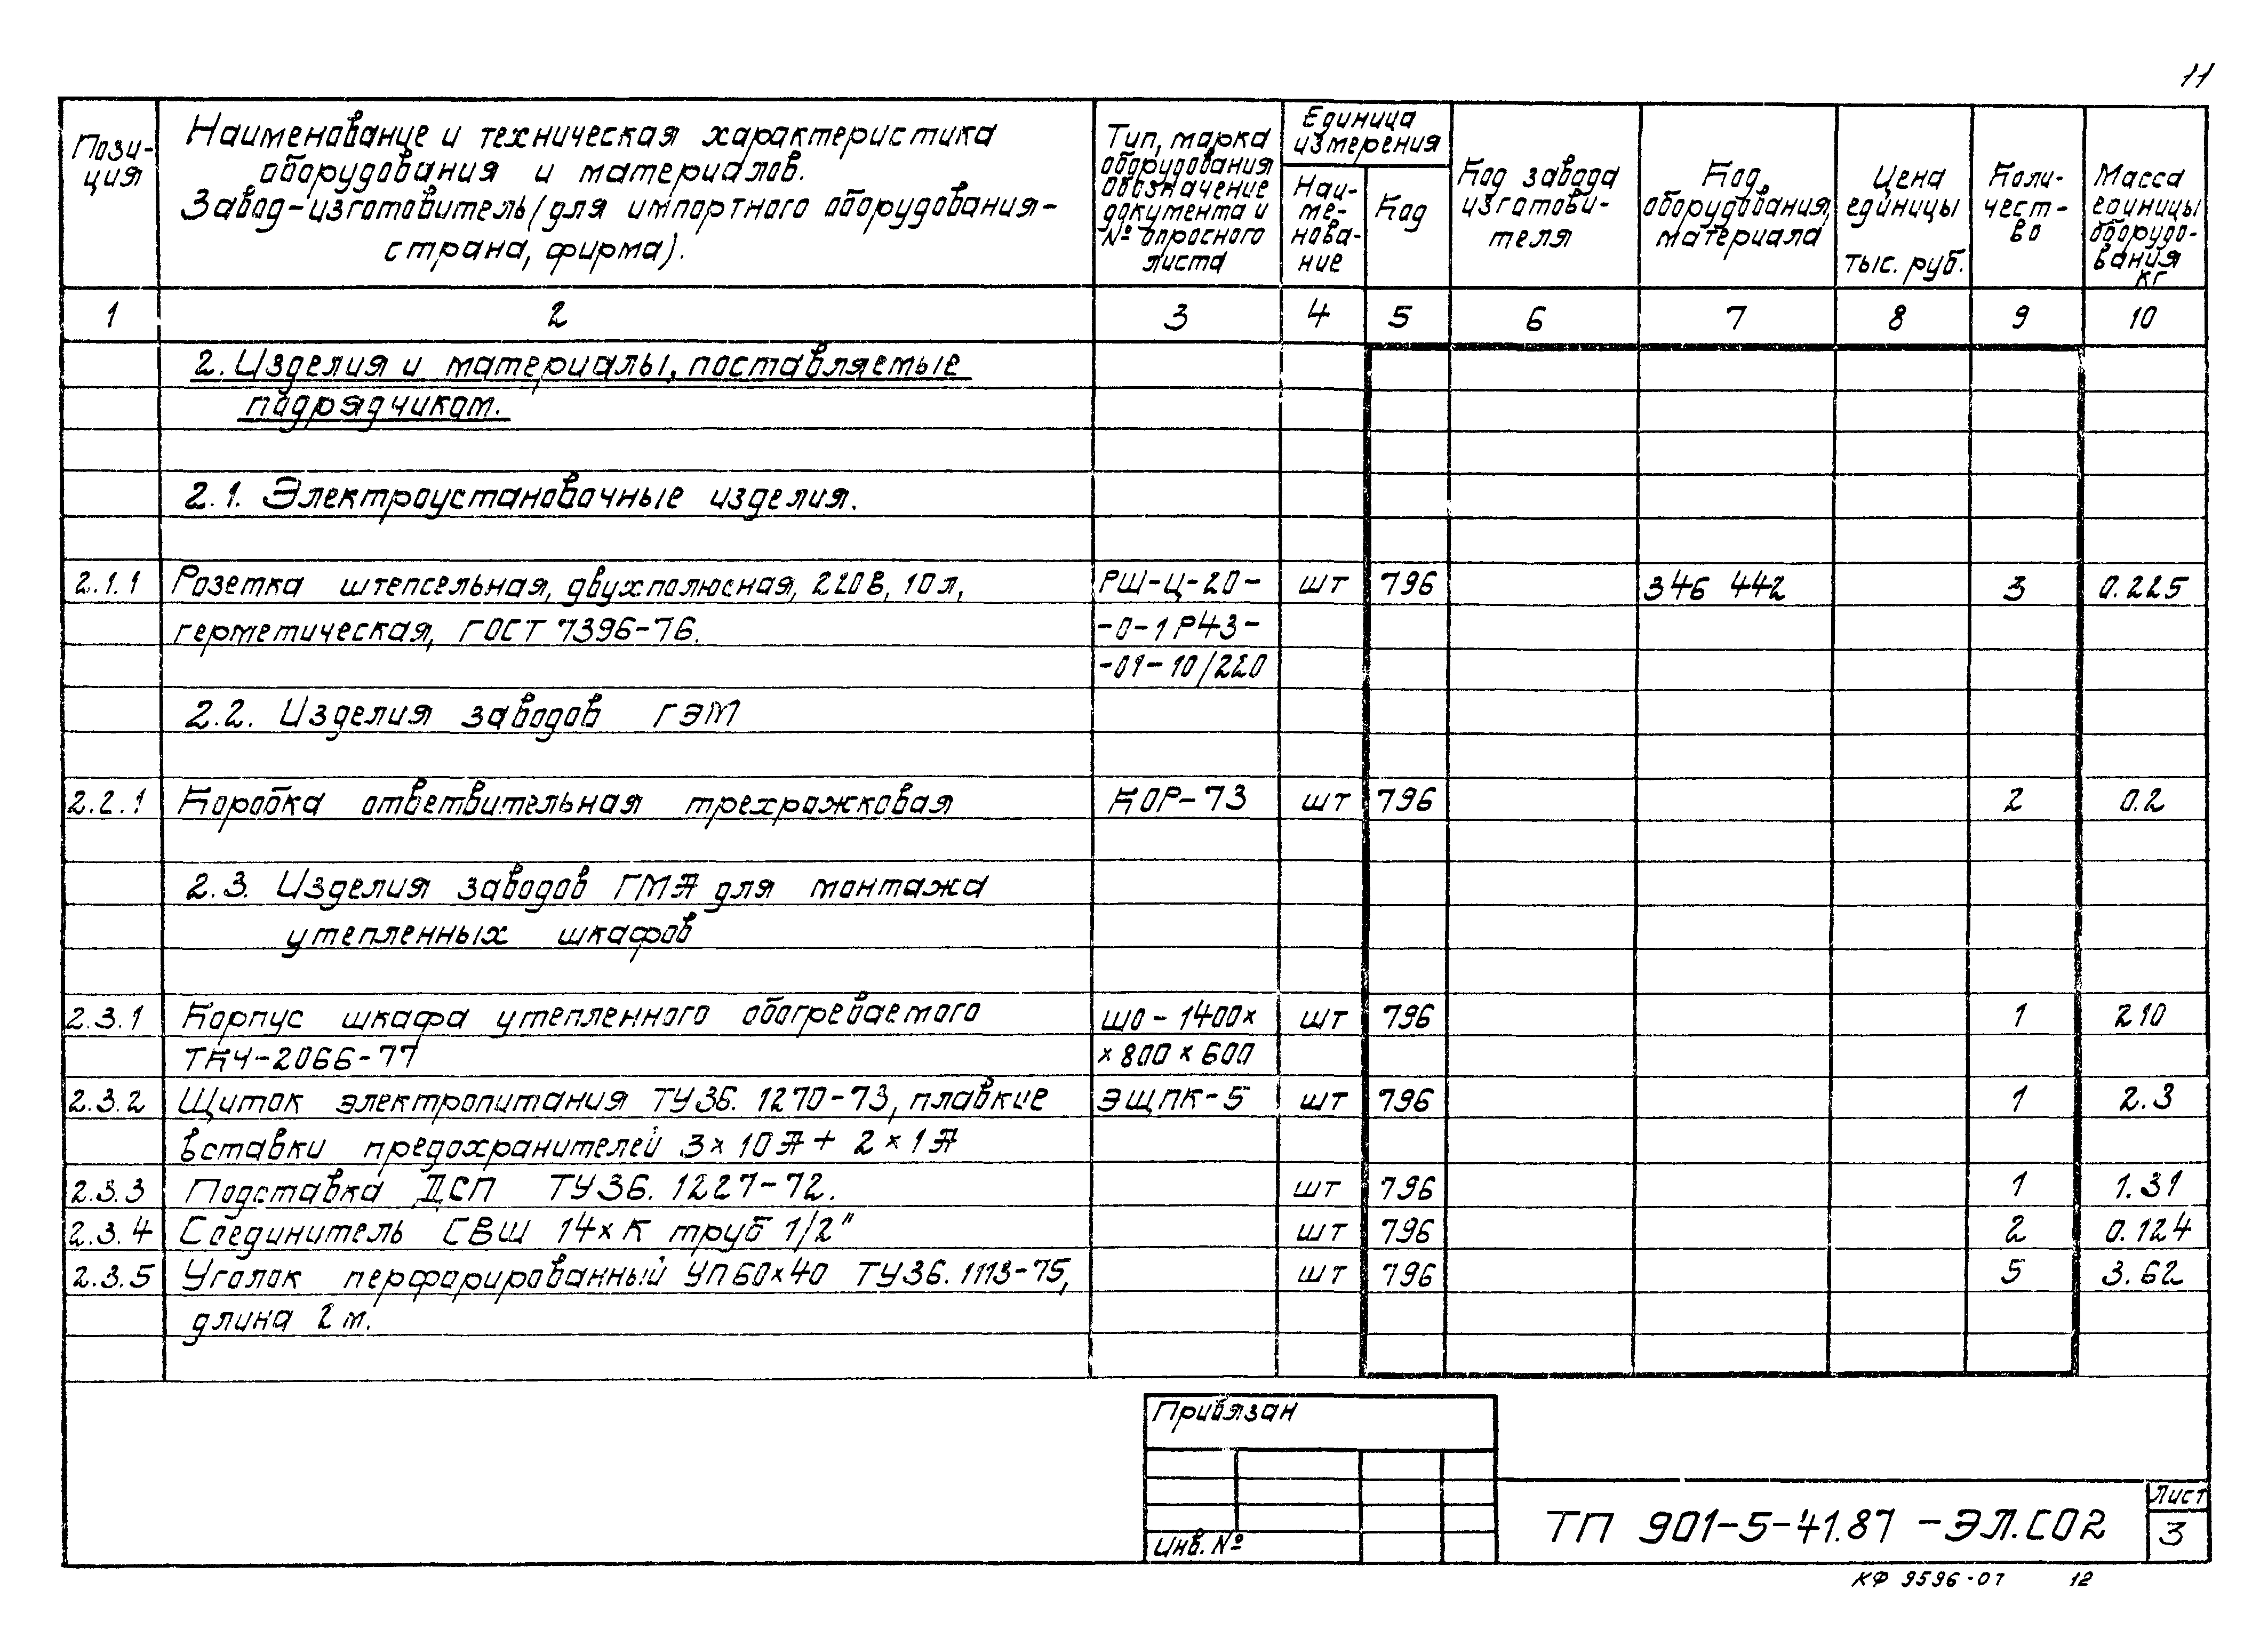 11
Пози-
ция
Наименование и техническая характеристика
оборудования и материалов.
Завод-изготовитель (для импортного оборудования-
страна, фирма).
Тип, марка
оборудования
обозначение
документа и
№ опросного
листа
Единица
измерения
Наи-
ме-
нова-
ние
Код
Код завода
изготови-
теля
Код
оборудования,
материала
Цена
единицы
тыс. руб.
Коли-
чест-
во
Масса
единицы
оборудо-
вания
кг
1 2 3 4 5 6 7 8 9 10
2. Изделия и материалы, поставляемые
подрядчиком.
2.1. Электроустановочные изделия.
2.1.1 Розетка штепсельная, двухполюсная, 220В, 10л, РШ-Ц-20- шт 796 346 442 3 0.225
герметическая, ГОСТ 7396-76. -0-1Р43-
-01-10/220
2.2. Изделия заводов ГЭМ
2.2.1 Коробка ответвительная трехрожковая КОР-73 шт 796 2 0.2
2.3. Изделия заводов ГМА для монтажа
утепленных шкафов
2.3.1 Корпус шкафа утепленного обогреваемого ШО-1400× шт 796 1 210
ТКЧ-2066-77 ×800×600
2.3.2 Щиток электропитания ТУ36.1270-73, плавкие ЭЩПК-5 шт 796 1 2.3
вставки предохранителей 3×10А+ 2×1А
2.3.3 Подставка ДСП ТУ36.1227-72. шт 796 1 1.31
2.3.4 Соединитель СВШ 14×К труб 1/2" шт 796 2 0.124
2.3.5 Уголок перфорированный УП60×40 ТУ36.1113-75, шт 796 5 3.62
длина 2м.
Привязан
Инв. №
ТП 901-5-41.87 -ЭЛ.СО2
Лист
3
КФ 9596-07 12